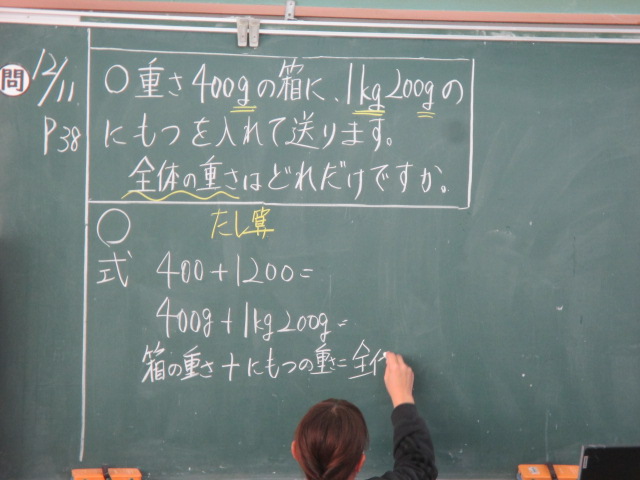 問
12/11
P38
○重さ400gの箱に、1kg200gの
にもつを入れて送ります。
全体の重さはどれだけですか。
○
たし算
式 400+1200=
400g+1kg200g=
箱の重さ+にもつの重さ=全体